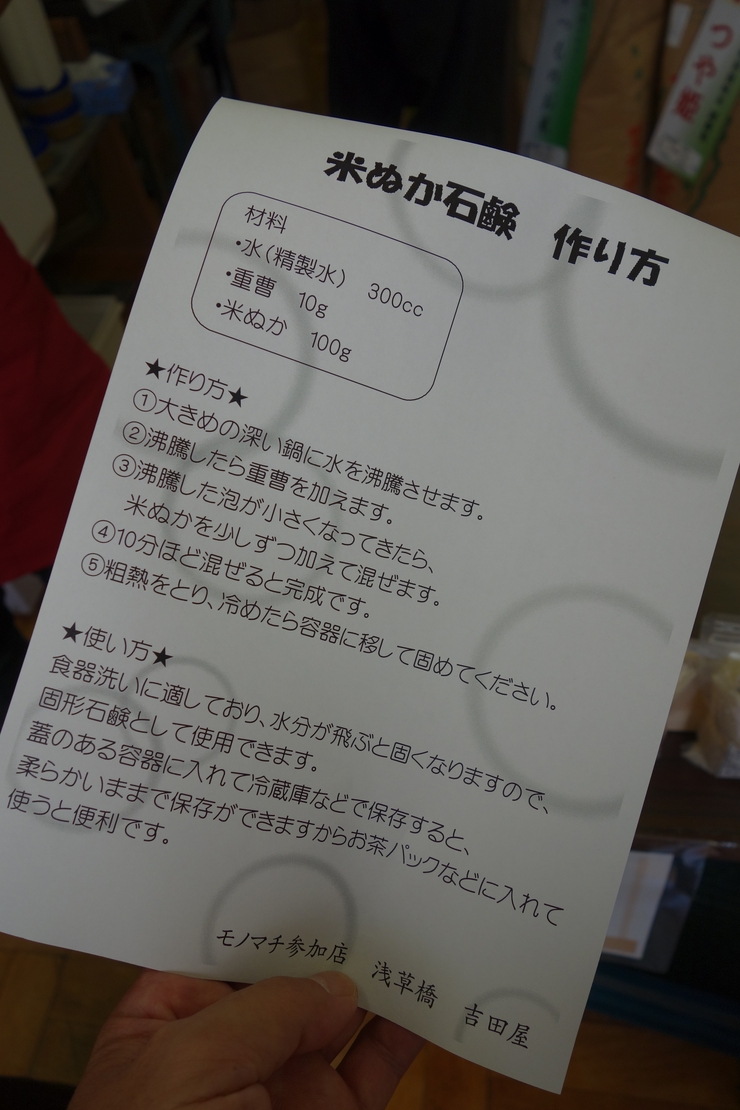 つや姫
米ぬか石鹸 作り方
材料
・水(精製水) 300cc
・重曹 10g
・米ぬか 100g
★作り方★
①大きめの深い鍋に水を沸騰させます。
②沸騰したら重曹を加えます。
③沸騰した泡が小さくなってきたら、
米ぬかを少しずつ加えて混ぜます。
④10分ほど混ぜると完成です。
⑤粗熱をとり、冷めたら容器に移して固めてください。
★使い方★
食器洗いに適しており、水分が飛ぶと固くなりますので、
固形石鹸として使用できます。
蓋のある容器に入れて冷蔵庫などで保存すると、
柔らかいままで保存ができますからお茶パックなどに入れて
使うと便利です。
モノマチ参加店 浅草橋 吉田屋